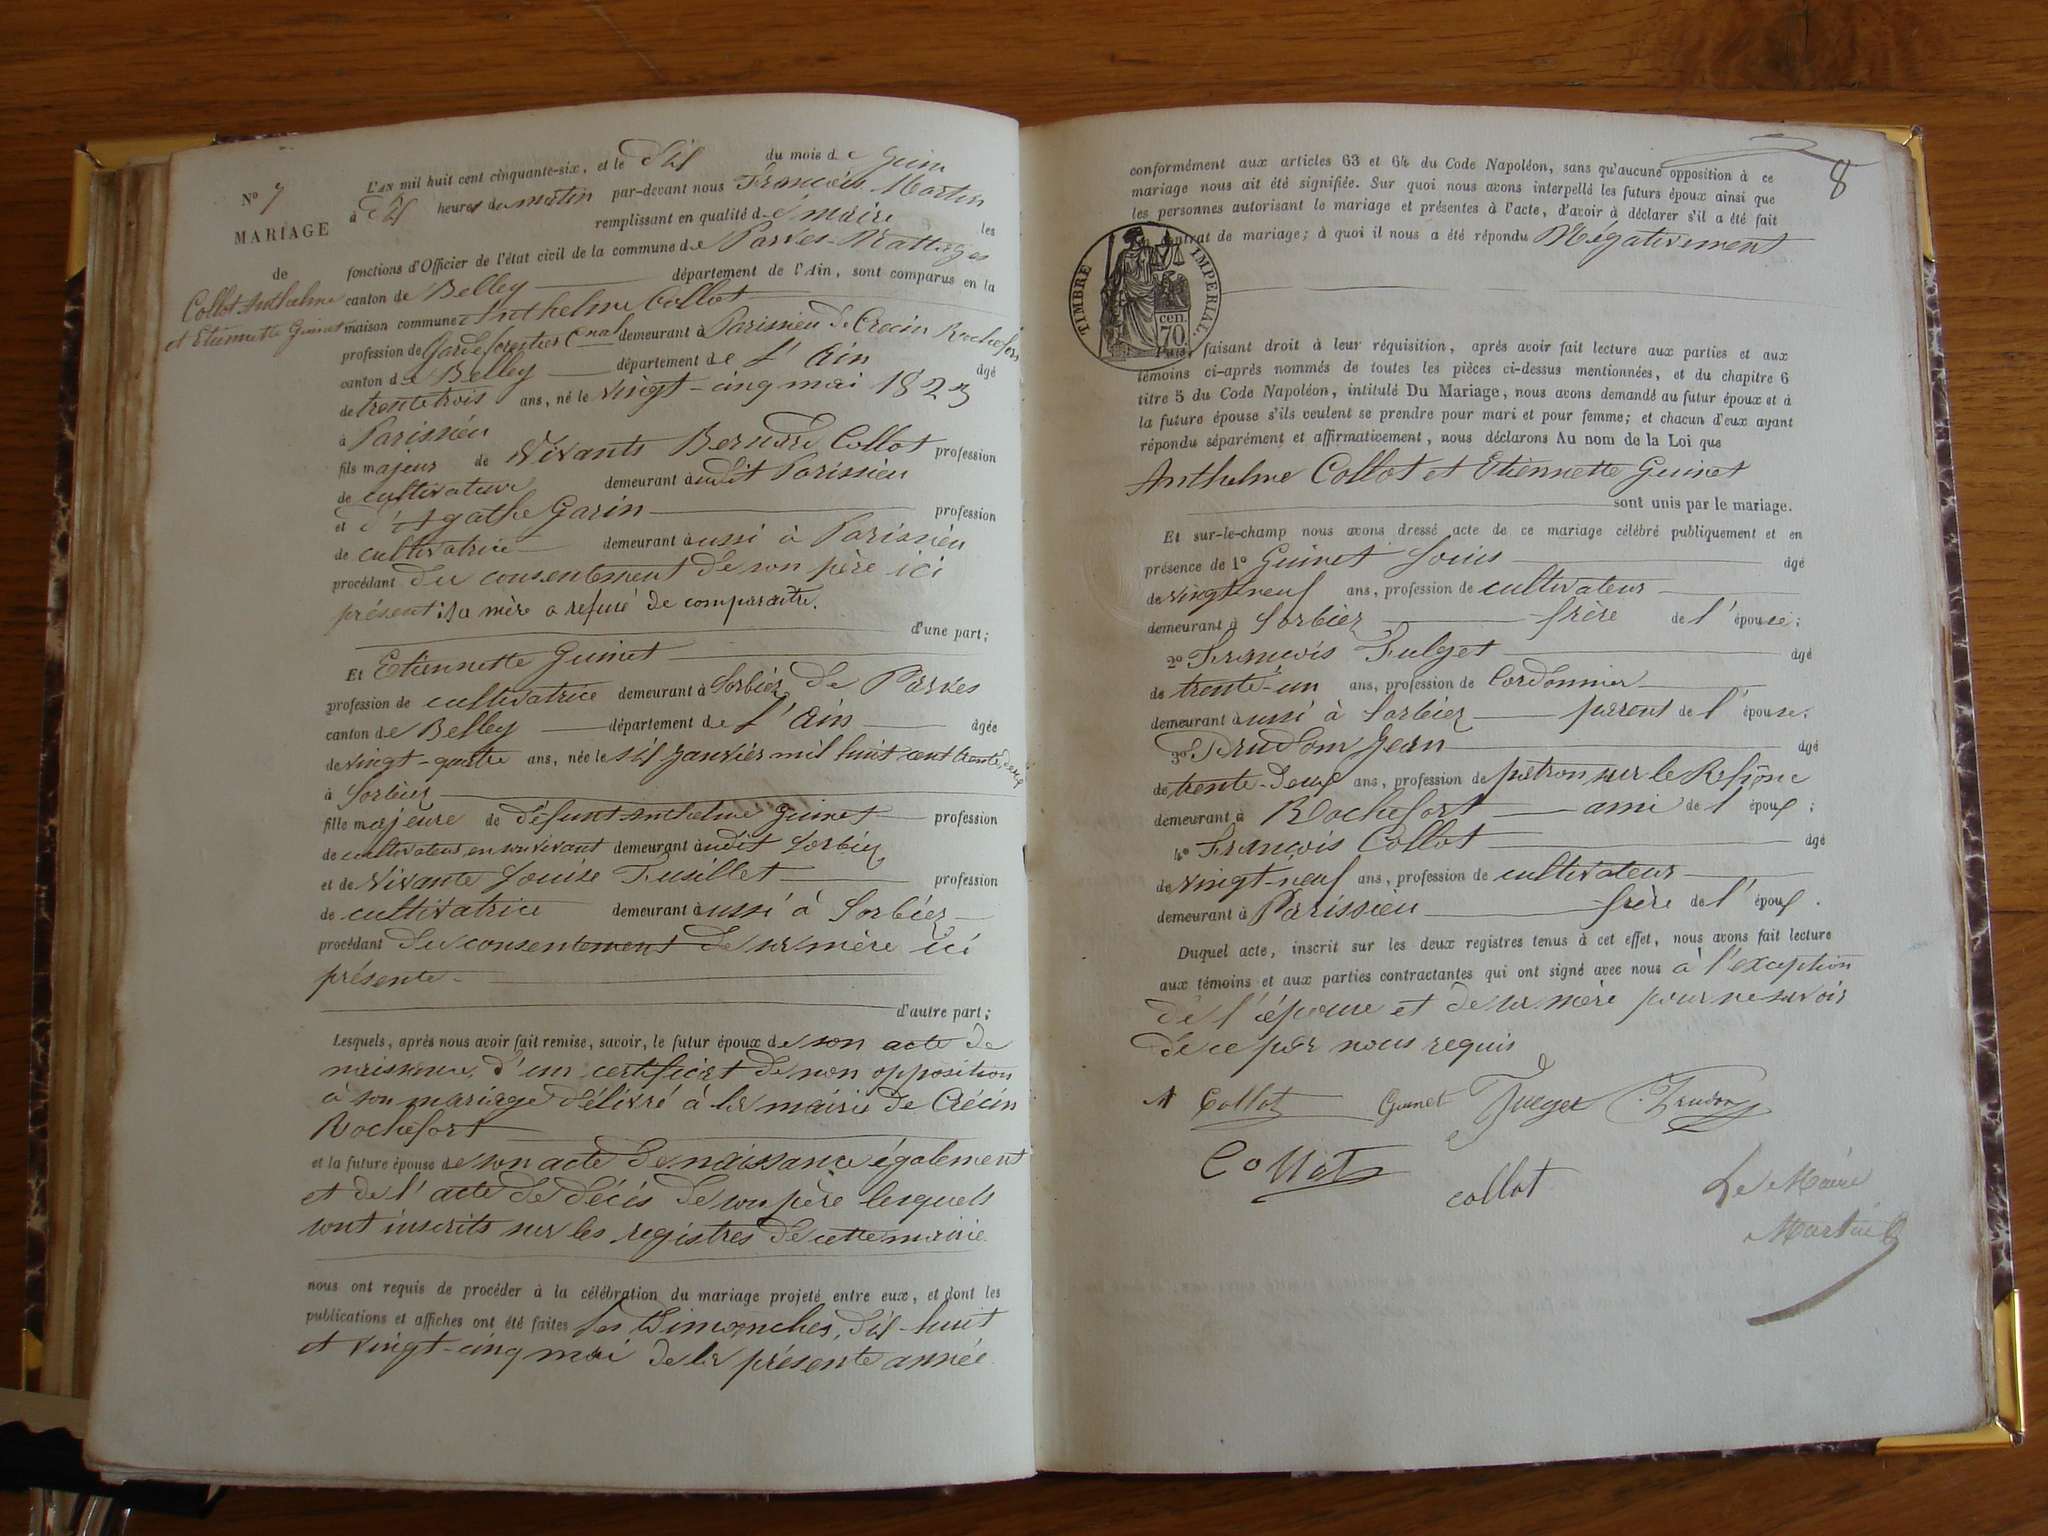 N° 7
MARIAGE
de
Collot Anthelme
et Etiennette Guinet
L'AN mil huit cent cinquante-six, et le dix du mois de Juin
à dix heures du matin par-devant nous François Martin
remplissant en qualité de maire les
fonctions d'Officier de l'état civil de la commune de Parves Nattages
canton de Belley département de l'Ain, sont comparus en la
maison commune Anthelme Collot
profession de Garde forestier Cnal demeurant à Parissieu de Crecin Rochefort
canton de Belley département de L'Ain âgé
de trente trois ans, né le vingt-cinq mai 1823
à Parissieu
fils majeur de Vivants Bernard Collot profession
de cultivateur demeurant audit Parissieu
et d'Agathe Garin profession
de cultivatrice demeurant aussi à Parissieu
procédant du consentement de son père ici
présent; sa mère a refusé de comparaître.
d'une part;
Et Etiennette Guinet
profession de cultivatrice demeurant à Sorbier de Parves
canton de Belley département de L'Ain âgée
de vingt-quatre ans, née le six Janvier mil huit cent trente deux
à Sorbier
fille majeure de défunt Anthelme Guinet profession
de cultivateur en son vivant demeurant audit Sorbier
et de vivante Louise Fusillet profession
de cultivatrice demeurant aussi à Sorbier
procédant du consentement de sa mère ici
présente
d'autre part;
Lesquels, après nous avoir fait remise, savoir, le futur époux de son acte de
naissance, d'un certificat de non opposition
à son mariage délivré à la mairie de Crécin
Rochefort
et la future épouse de son acte de naissance également
et de l'acte de décès de son père lesquels
sont inscrits sur les registres de cette mairie
nous ont requis de procéder à la célébration du mariage projeté entre eux, et dont les
publications et affiches ont été faites les Dimanches, dix-huit
et vingt-cinq mai de la présente année
8
conformément aux articles 63 et 64 du Code Napoléon, sans qu'aucune opposition à ce
mariage nous ait été signifiée. Sur quoi nous avons interpellé les futurs époux ainsi que
les personnes autorisant le mariage et présentes à l'acte, d'avoir à déclarer s'il a été fait
contrat de mariage; à quoi il nous a été répondu Négativement
TIMBRE IMPÉRIAL.
70 cen.
Puis, faisant droit à leur réquisition, après avoir fait lecture aux parties et aux
témoins ci-après nommés de toutes les pièces ci-dessus mentionnées, et du chapitre 6
titre 5 du Code Napoléon, intitulé Du Mariage, nous avons demandé au futur époux et à
la future épouse s'ils veulent se prendre pour mari et pour femme; et chacun d'eux ayant
répondu séparément et affirmativement, nous déclarons Au nom de la Loi que
Anthelme Collot et Etiennette Guinet
sont unis par le mariage.
Et sur-le-champ nous avons dressé acte de ce mariage célébré publiquement et en
présence de 1° Guinet Louis âgé
de vingt neuf ans, profession de cultivateur
demeurant à Sorbier frère de l'épouse;
2° François Fulget âgé
de trente-un ans, profession de Cordonnier
demeurant aussi à Sorbier parent de l'épouse;
3° Prudom Jean âgé
de trente-deux ans, profession de patron sur le Rhône
demeurant à Rochefort ami de l'époux;
4° François Collot âgé
de vingt-neuf ans, profession de cultivateur
demeurant à Parissieu frère de l'époux.
Duquel acte, inscrit sur les deux registres tenus à cet effet, nous avons fait lecture
aux témoins et aux parties contractantes qui ont signé avec nous à l'exception
de l'épouse et de sa mère pour ne savoir
de ce par nous requis
A Collot Guinet
Collot collot Le Maire
Martin